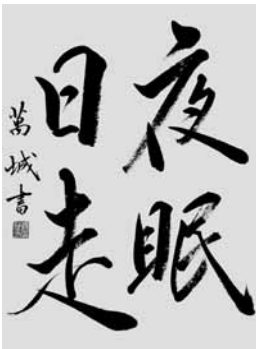 夜眠
日走
萬城書